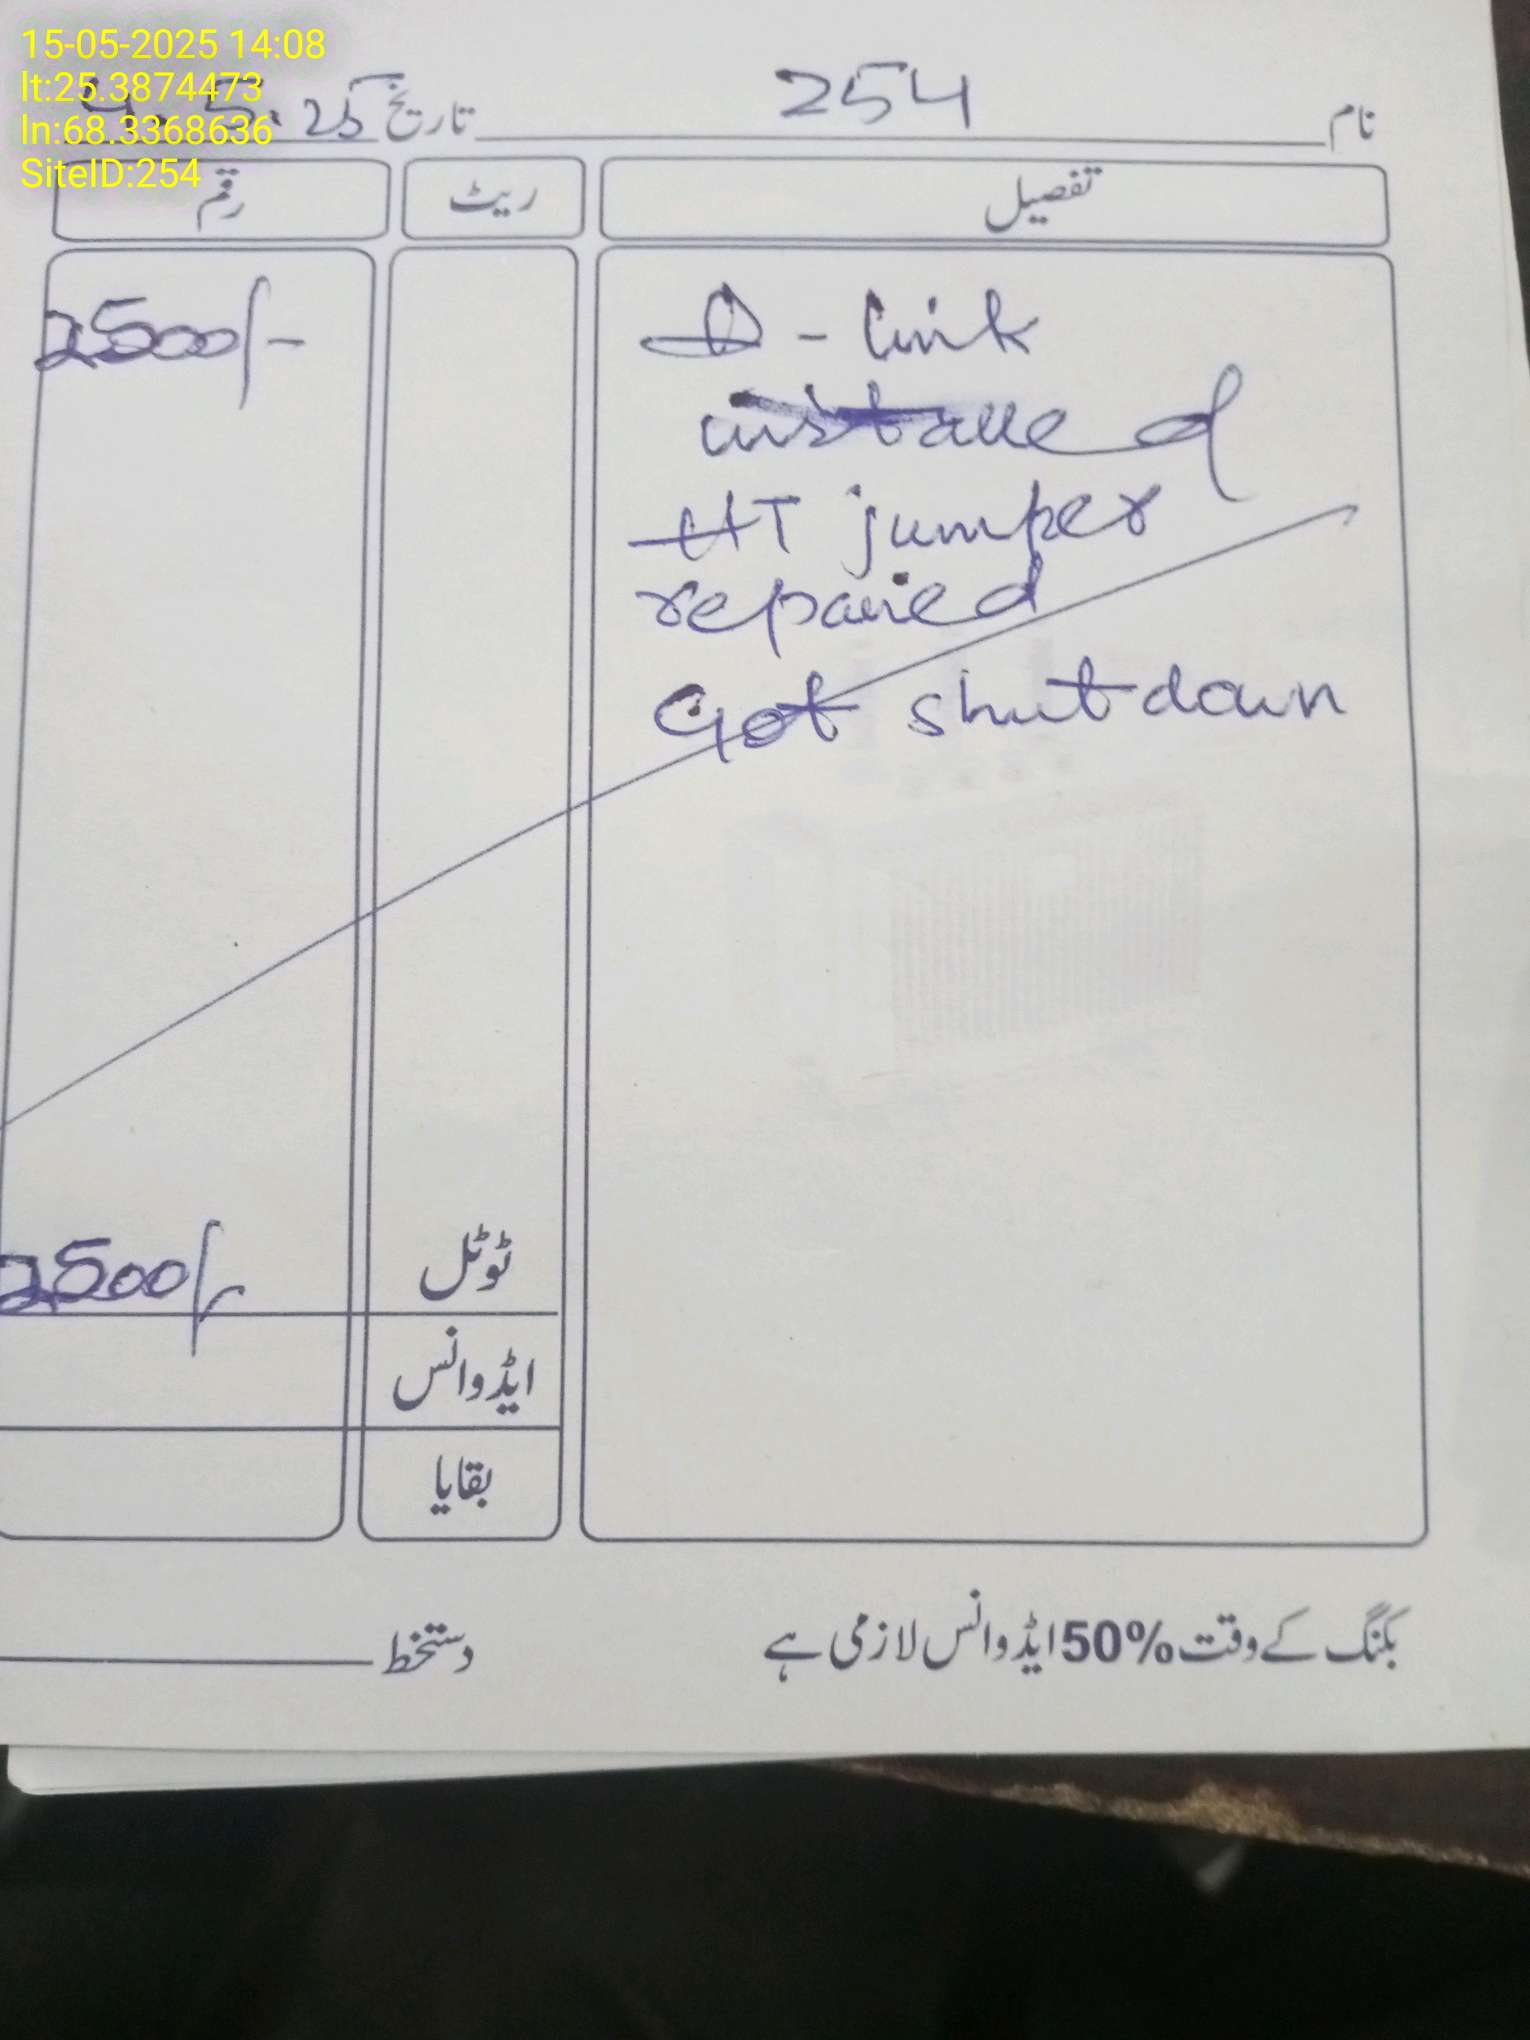 15-05-2025 14:08
lt:25.3874473
ln:68.3368636
SiteID:254
نام 254 تاریخ 4.5.25
تفصیل ریٹ رقم
D-link 2500/-
installed
HT jumper
repaired
Got shutdown
ٹوٹل 2500/-
ایڈوانس
بقایا
بکنگ کے وقت 50% ایڈوانس لازمی ہے دستخط